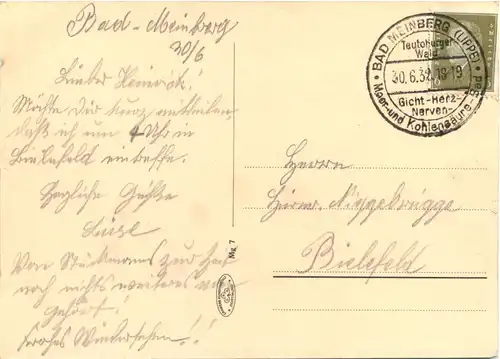 Bad-Meinberg
30/6
Lieber Heinrich!
Möchte Dir kurz mitteilen,
daß ich um 4 Uhr in
Bielefeld eintreffe.
Herzliche Grüße
Liesel
Von Stückmanns zur Zeit
noch nichts weiteres
gehört!
Frohes Wiedersehen!!
BAD MEINBERG (LIPPE)
Teutoburger
Wald
30.6.32.18-19
Gicht-Herz-
Nerven-
Moor-und Kohlensäure-Bad
Herrn
Heinr. Niggebrügge
Bielefeld
Mg. 7